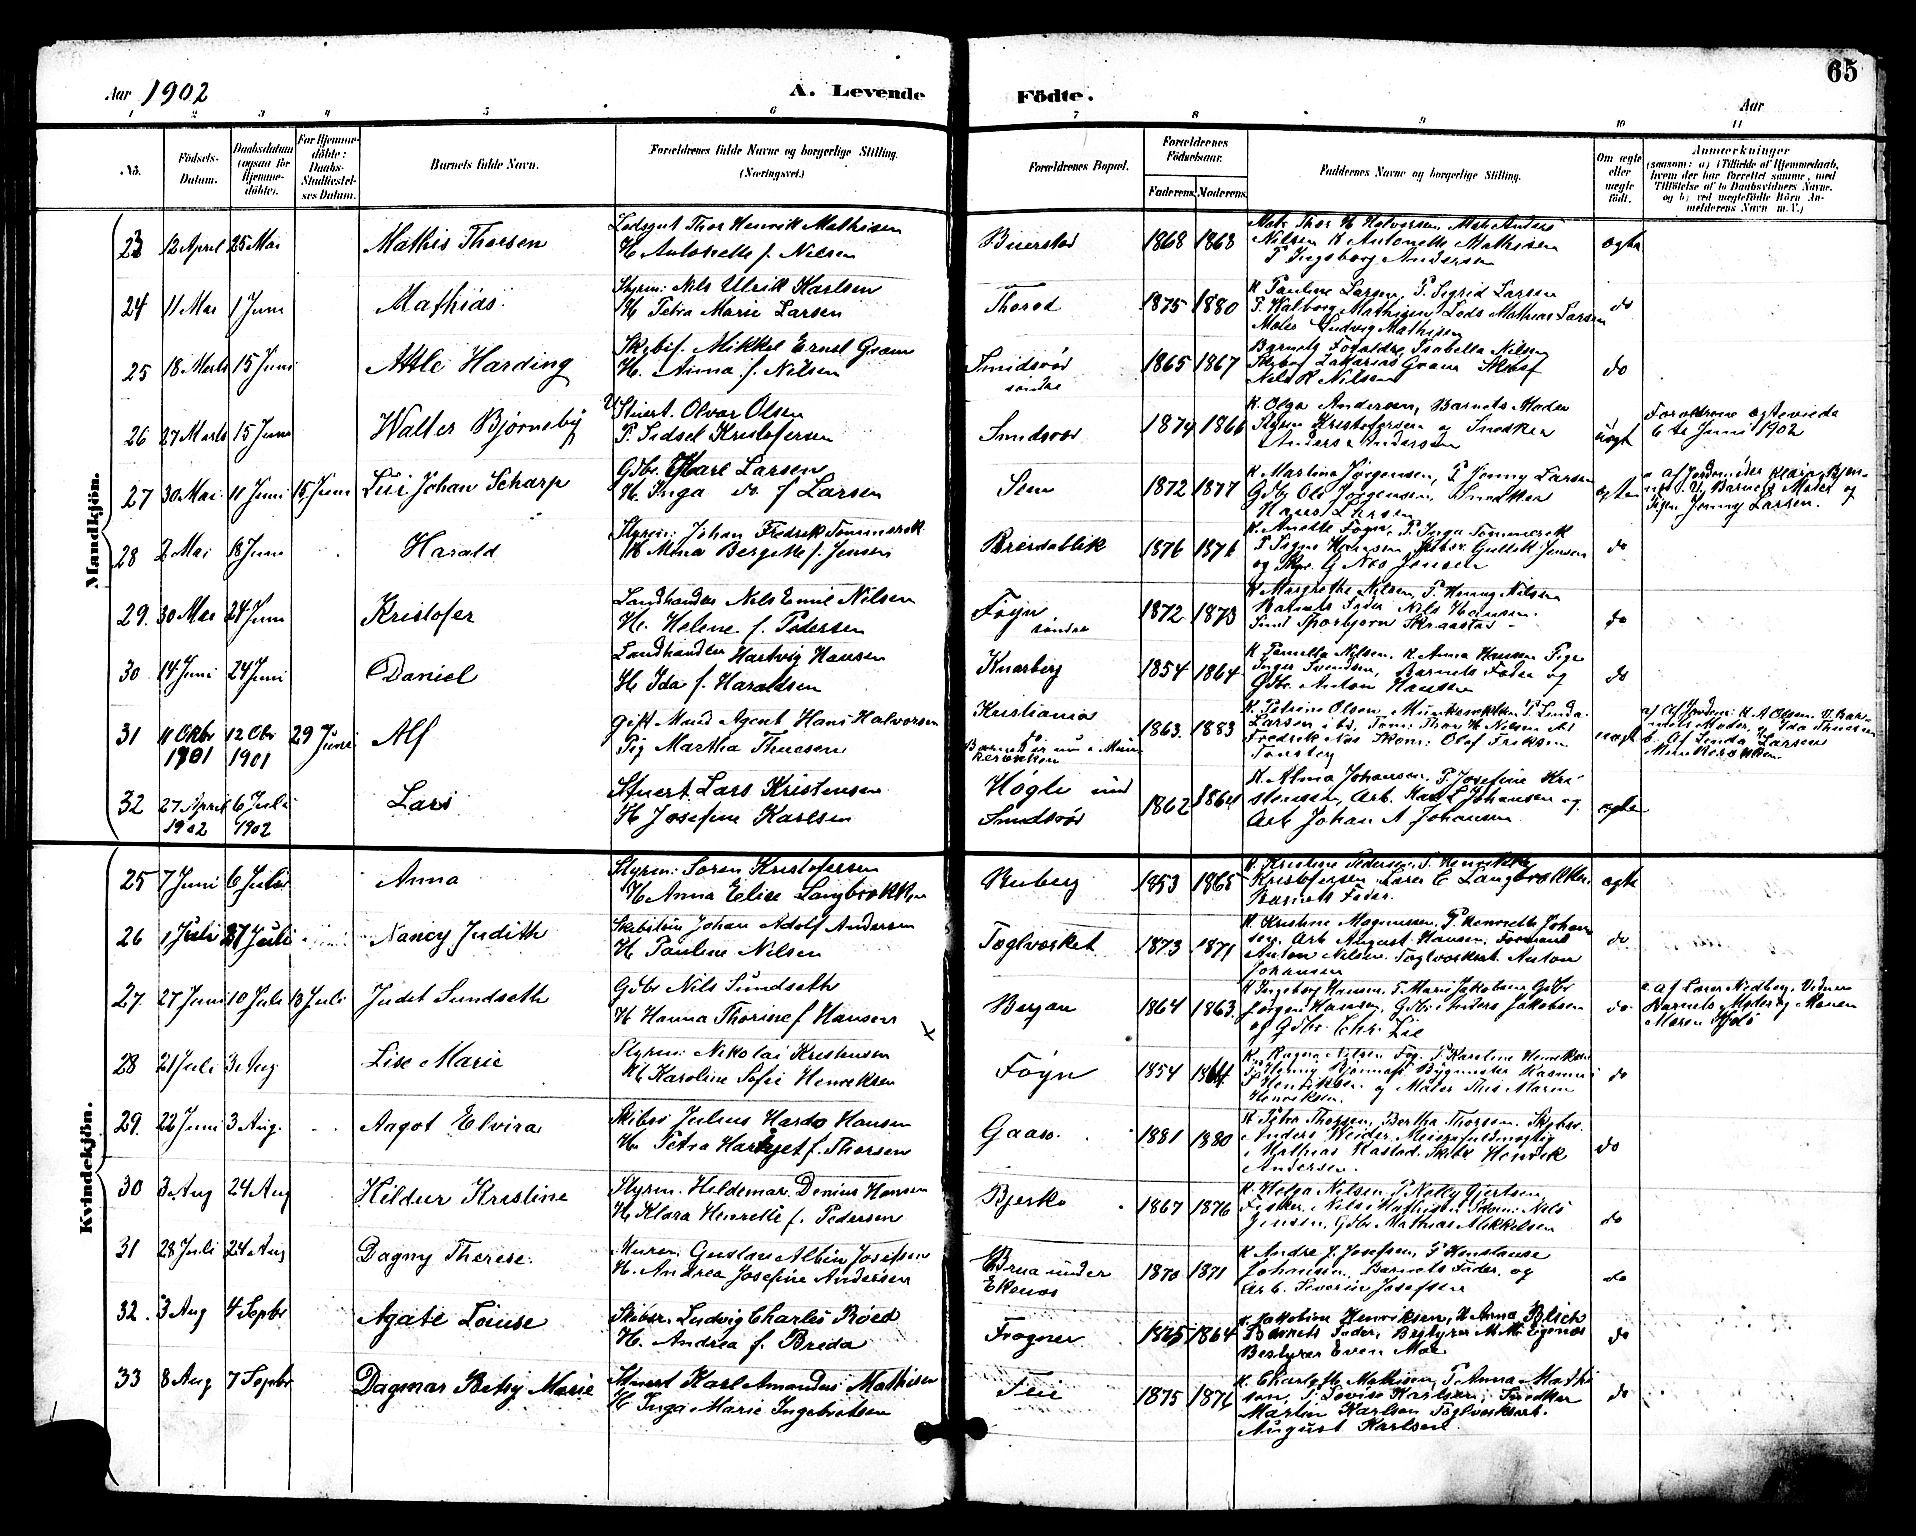 Aar 1902
A. Levende Födte.
65
Aar
1 2 3 4 5 6 7 8 9 10 11
No.
Födsels-Datum.
Daabsdatum (ogsaa for Hjemmedöbte).
For Hjemmedöbte: Daabs-Stadfæstelses Datum.
Barnets fulde Navn.
Forældrenes fulde Navne og borgerlige Stilling. (Næringsvei.)
Forældrenes Bopæl.
Forældrenes Födselsaar.
Faderens. Moderens.
Faddernes Navne og borgerlige Stilling.
Om ægte eller uægte födt.
Anmærkninger
(saasom: a) i Tilfælde af Hjemmedaab, hvem der har forrettet samme, med Tilföielse af to Daabsvidners Navne. og b) ved uægtefödte Börn Anmelderens Navn m. V.)
Mandkjön.
23 12 April 25 Mai Mathis Thorsen
Lodsgut Thor Henrik Mathisen
H Antonette f. Nilsen
1868 1868
Nilsen K Antonette Mathisen
P Ingeborg Andersen
ægte
24 11 Mai 1 Juni Mathias
Styrm: Nils Ulrik Karlsen
H. Petra Marie Larsen
Thorød 1875 1880
K Pauline Larsen, P. Sigrid Larsen
P. Walborg Mathisen, Lods Mathias Larsen
Ludvig Mathisen
do
25 18 Marts 15 Juni Atle Harding
Skybsf. Mikkel Ernst Gram
H. Anna f. Nilsen
Smidsrød søndre
1865 1867
Barnets Forældre, Isabella Nilsen
Skybsf Zakarias Gram
Nils R Nilssen
do
26 27 Marts 15 Juni Walter Bjørneby
U Stuert. Olvar Olsen
P. Sidsel Kristofersen
Smidsrød 1874 1866
K. Olga Andersen, Barnets Moder
Styrm Kristofersen og Snedker
Anders Andersen
uægt
Forældrene ægteviede
6te Juni 1902
27 30 Mai 11 Juni 15 Juni Lui Johan Scharp
Gdbr. Karl Larsen
H. Inga do. f Larsen
Sem 1872 1877
K. Martina Jørgensen, P Jenny Larsen
Gdbr Ole Jørgensen, Snedker
Hans Larsen
ægte
a. af Jordmoder Klara
Barnets Moder og
Pigen Jenny Larsen.
28 2 Mai 8 Juni Harald
Styrm: Johan Fredrik Tommerek
H Mina Bergitte f. Jensen
Breidablik 1876 1876
K. Anette Føyn, P. Inga Tommerek
P Signe Hansen Gullik Jensen
do
29. 30 Mai 24 Juni Kristofer
Landhandler Nils Emil Nilsen
H. Helene f. Pedersen
Føyn søndre
1872 1873
K Margrethe Nilsen, P. Henny Nilsen
Barnets Fader Nils Hansen.
do
30 14 Juni 24 Juni Daniel
Landhandler Hartvig Hansen
H. Ida f. Haraldsen
Knarberg 1854 1864
K Pernella Nilsen, K Anna Hansen Pige
Inger Svendsen, Barnets Fader og
Gdbr. Anton Hansen
do
31 11 Oktbr 1901 12 Obr 1901 29 Juni Alf
gift Mand Agent Hans Halvorsen
Pig Martha Thuesen
Kristiania
Barnet er nu i Munkerækken
1863 1883
K. Petrine Olsen, Munkerækken P. Linda
Larsen ibd, Tøm: Thor H Nilsen
Fredrik Næs Skom: Olof Eriksen
Tønsberg
uægt
Moder, Ida Thuesen
b. Af Linda Larsen
Munkerækken
32 27 April 1902 6 Juli 1902 Lars
Stuert. Lars Kristensen
H Josefine Karlsen
Høgli und
Smidsrød
1862 1864
K. Alma Johansen, P. Josefine Kri-
stensen, Arb. Karl Johansen og
Arb Johan A Johansen
ægte
Kvindekjön.
25 7 Juni 6 Juli Anna
Styrm: Søren Kristofersen
H Anna Elise Langbrækken
Buberg 1853 1865
K. Kristine Pedersen, P. Henrikke
Kristofersen, Lars C Langbrækken
Barnets Fader
ægte
26 1 Juli 27 Juli Nancy Judith
Skibstøm Johan Adolf Andersen
H Pauline Nilsen
Teglværket 1873 1871
K. Kristine Magnussen, P Henriette Johan
sen, Arb August Hansen, Formand
Anton Nilsen. Teglværkarb Anton
Johansen
do
27. 27 Juni 10 Juli 13 Juli Judet Sundseth
Gdbr Nils Sundseth
H Hanna Thorine f Hansen
Bergan 1864 1863.
K Ingeborg Hansen, P Marie Jakobsen Gdbr
Jørgen Hansen, Gdbr. Anders Jakobsen
og Gdbr. Chr. Lie
do
a. af Lærer Nedberg, Vidner
Barnets Moder og
Maren
28 21 Juli 3 Aug Lise Marie
Styrm: Nikolai Kristensen
H Karoline Sofie Henriksen
Føyn 1854 1864
K. Ragna Nilsen P Karoline Henriksen
Bygmester Rasmus
Henriksen og
Henriksen.
do
29. 22 Juni 3 Aug. Aagot Elvira
Skibsf Julius Hardo Hansen
H. Petra Hargjet f. Thorsen
Gaasø. 1881 1880
K. Petra Thorsen, Bertha Thorsen. Skybs.
Anders Weider
Mathias Kastad. Henrik
Andersen.
do
30 3 Aug 24 Aug Hildur Kristine
Styrm. Hildemar Denius Hansen
H. Klara Henrette f. Pedersen
Bjerkø 1867 1876
K. Helga Nilsen, P. Nelly Gjertsen
Fisker Nils Mathisen Tøm: Nils
Jensen, Gdbr Mathias Mikkelsen
do
31 28 Juli 24 Aug Dagny Therese.
Murm: Gustav Albin Josefsen
H. Andrea Josefine Andersen
Brua under
Ekenes
1870 1871
K Andre J. Josefsen, P Konstanse
Johansen, Barnets Fader, og
Arb. Severin Josefsen
do
32. 3 Aug 4 Septbr Agate Louise
Skibsr. Ludvig Charles Røed
H. Andrea f. Breda
Trogner 1864
K. Jakobine Henriksen, K Anna Blich
Barnets Fader, Bestyrer M. M. Eigenæs
Bestyrer Even Moe
do
33 8 Aug 7 Septbr Dagmar Betsy Marie
Stuert Karl Amandus Mathisen
H Inga Marie Ingebretsen
Teie 1875 1876
K. Charlotte Mathisen, P. Anna Madti
sen, P. Lovise Karlsen, Snedker
Martin Karlsen Teglværksarb.
August Karlsen
do